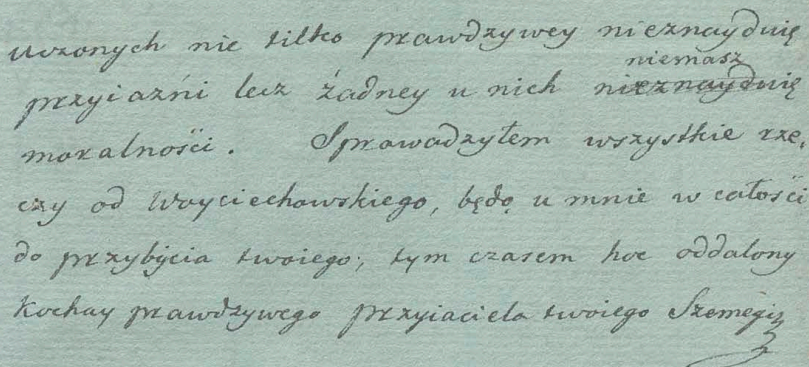 uczonych nie tilko prawdzywey nieznayduię
niemasz
przyiaźni lecz żadney u nich nieznayduię
moralności. Sprawadzyłem wszystkie rze,
czy od Woyciechowskiego, będą u mnie w całości
do przybycia twoiego; tym czasem hoc oddalony
Kochay prawdzywego przyiaciela twoiego Szemegi